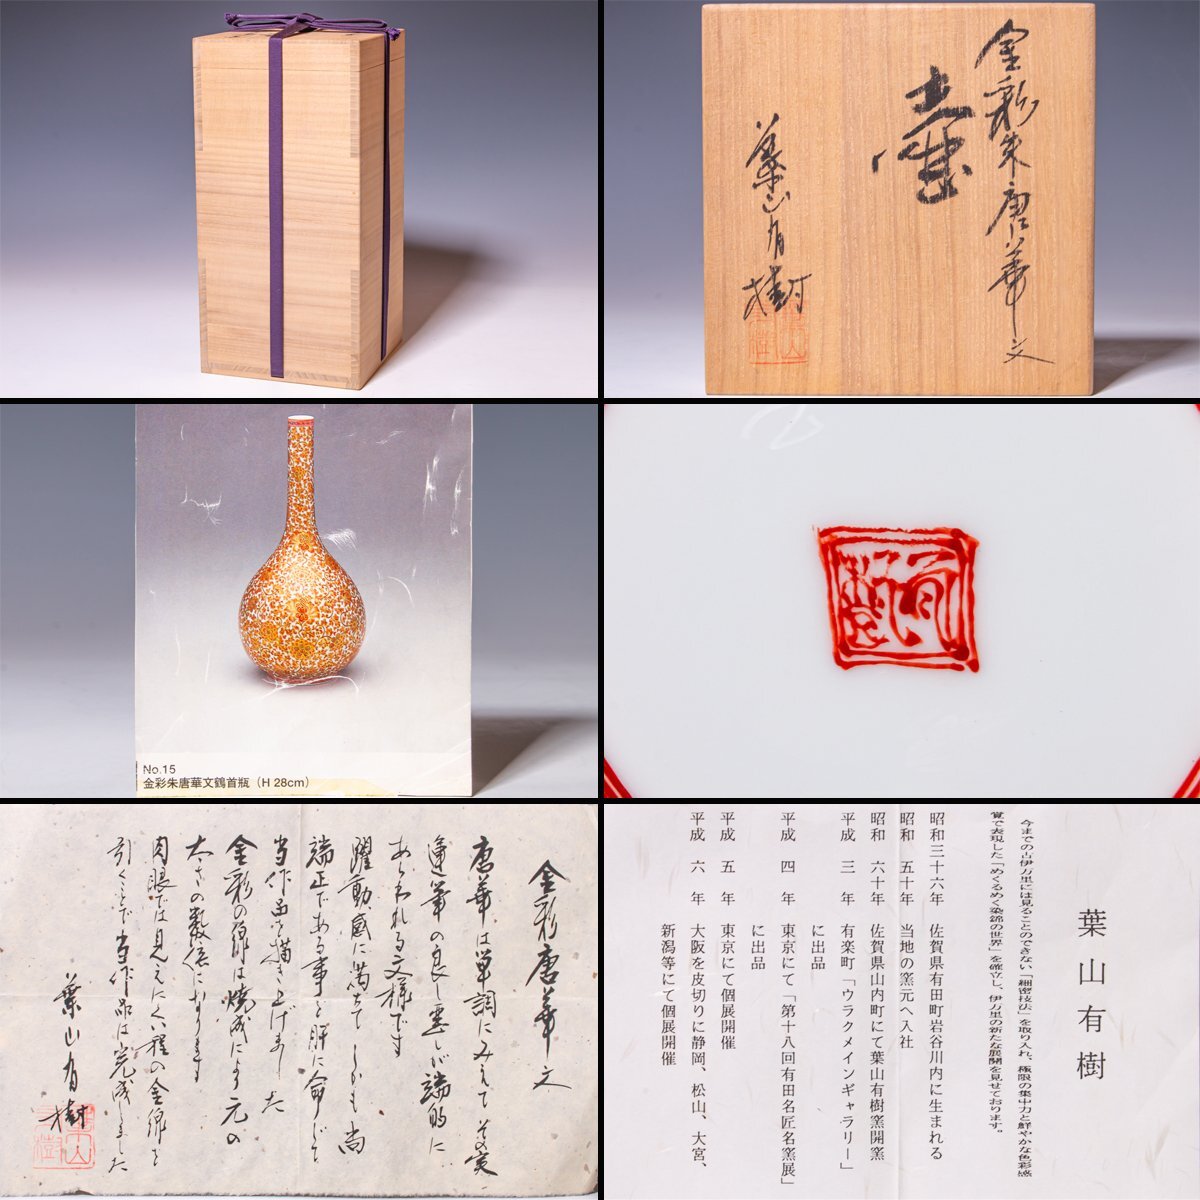 金彩朱唐華文
壺
葉山有樹
No.15
金彩朱唐華文鶴首瓶（H 28cm）
有樹
金彩唐華文
唐華は単調にみえてその実
運筆の良し悪しが端的に
あらわれる文様です
躍動感に満ちてしかも尚
端正である事を肝に命じて
当作品を描き上げました
金彩の線は焼成により元の
太さの数倍になります
肉眼では見えにくい程の金線を
引くことで当作品は完成しました
葉山有樹
葉山有樹
今までの古伊万里には見ることのできない「細密技法」を取り入れ、極限の集中力と鮮やかな色彩感
覚で表現した「めくるめく染錦の世界」を確立し、伊万里の新たな展開を見せております。
昭和三十六年 佐賀県有田町岩谷川内に生まれる
昭和 五十年 当地の窯元へ入社
昭和 六十年 佐賀県山内町にて葉山有樹窯開窯
平成 三 年 有楽町「ウラクメインギャラリー」
に出品
平成 四 年 東京にて「第十八回有田名匠名窯展」
に出品
平成 五 年 東京にて個展開催
平成 六 年 大阪を皮切りに静岡、松山、大宮、
新潟等にて個展開催